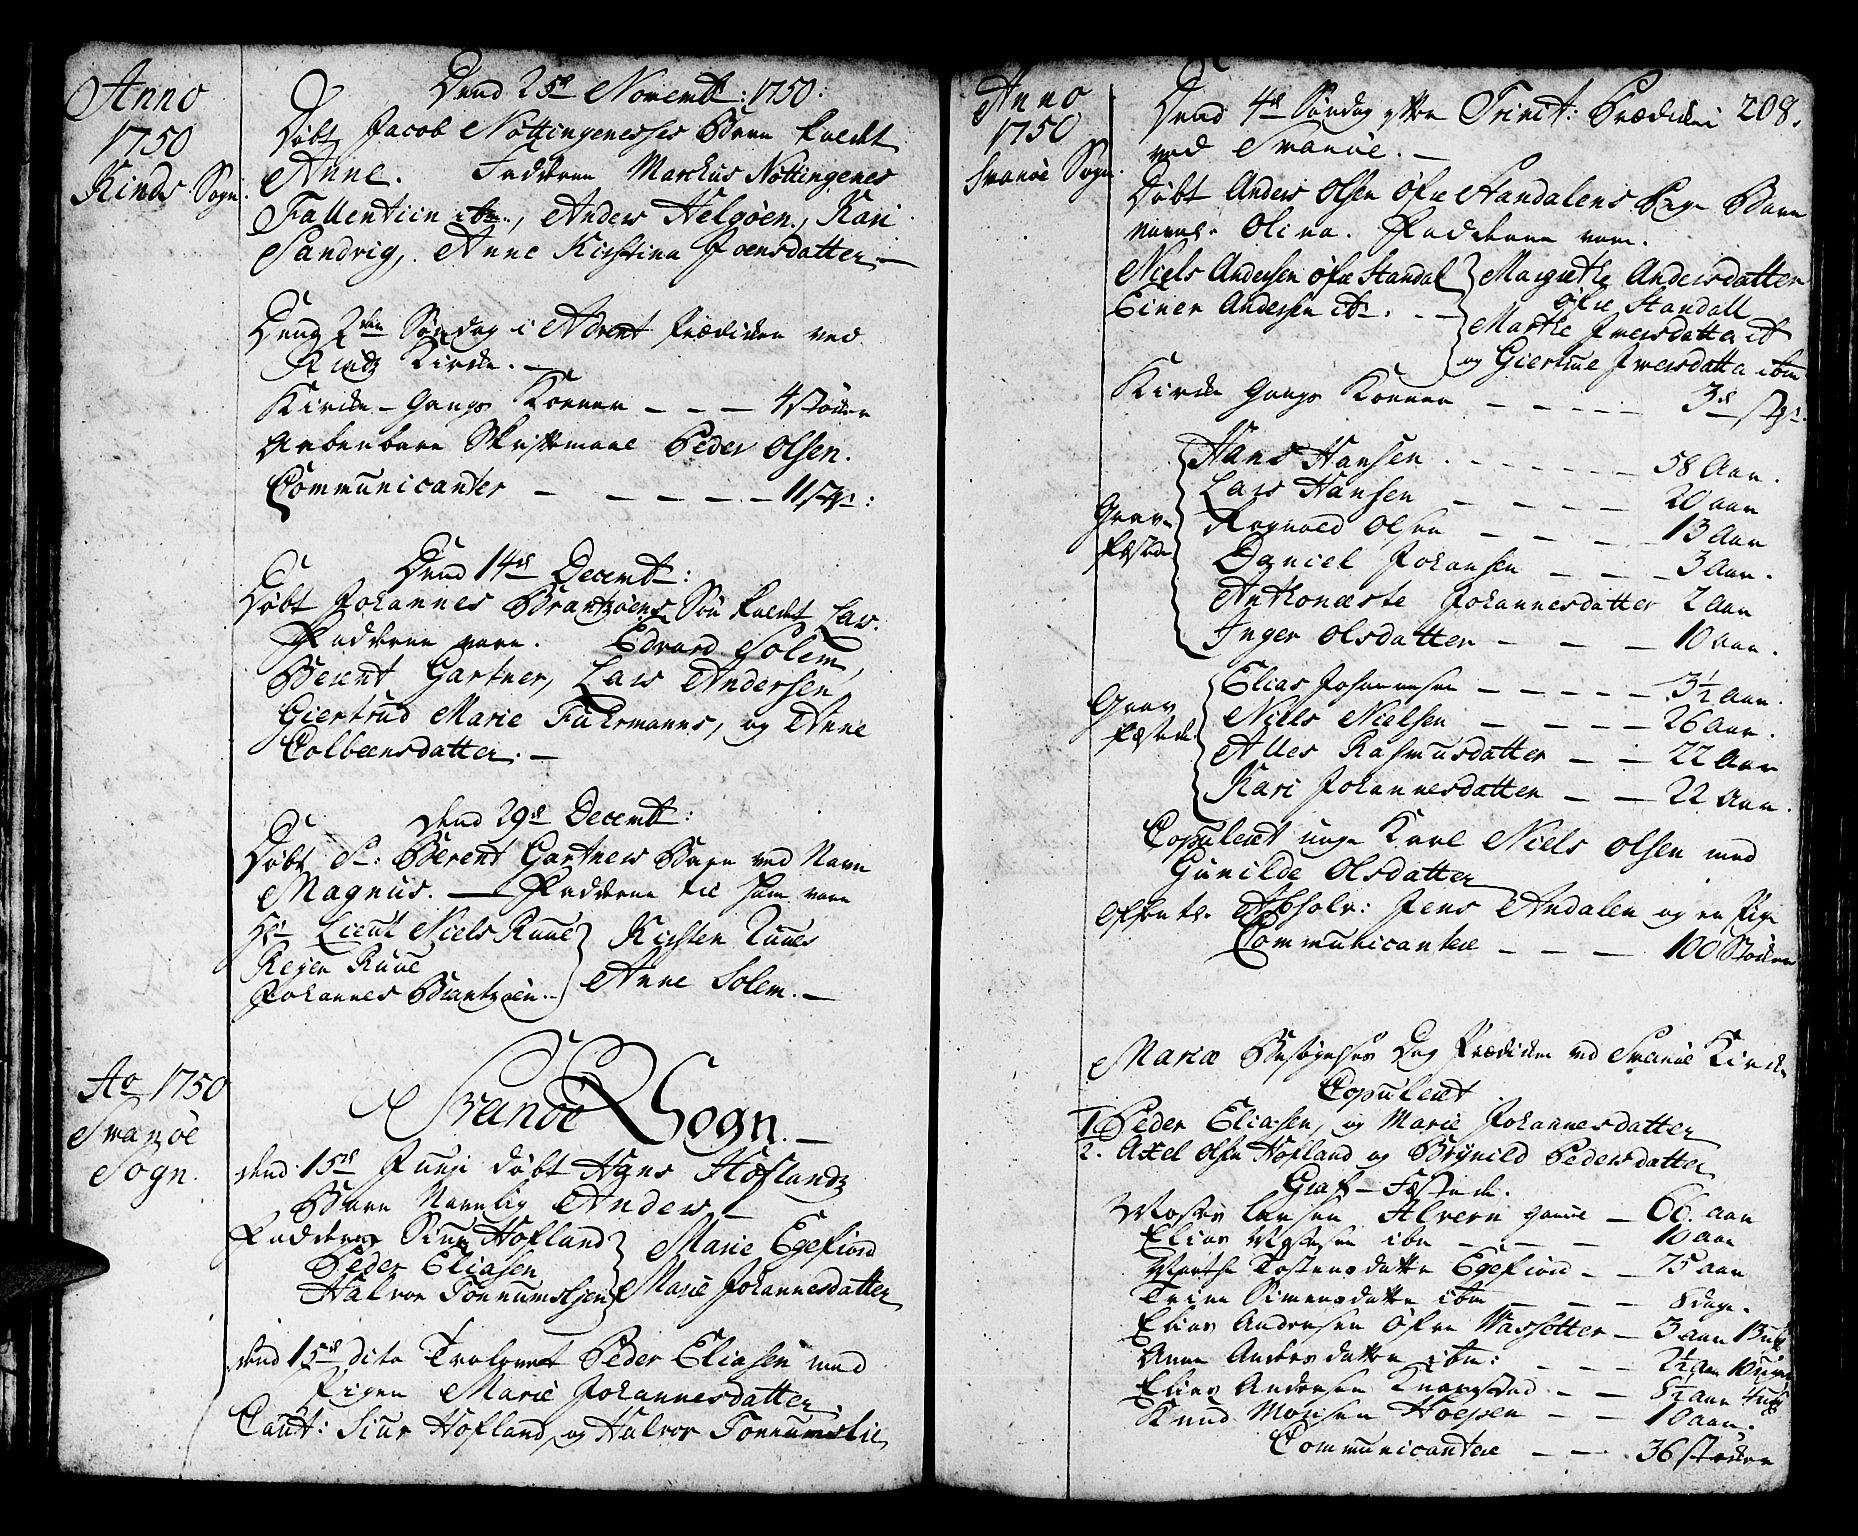 Anno
1750
Kinds Sogn.
Dend 25de Novembr: 1750.
Døbt Jacob Nøttingenesses Barn kaldt
Anne. Fadderne Marckus Nøttingenes
Fallentiin ibm., Anders Helgøen, Kari
Sandvig, Anne Kirstina Joensdatter. —
Dend 2den Søndag i Advent Prædiken ved
Kindz Kircke. —
Kircke-Gangs Koener — — — 4 støcker
Aabenbare Skriftemaal Peder Olsen.
Communicanter — — — — — 11 st:
Dend 14de Decembr:
Døbt Johannes Brantzøens Søn kaldt Lars.
Fadderne vare. Edvard Solem,
Berent Gartner, Lars Andersen,
Giertrud Marie Fuhrmanns, og Anne
Colbeensdatter. —
Dend 29de Decembr:
Døbt Sr: Berent Gartners Barn ved Navn
Magnus. — Fadderne til ham vare
Hr Lieut Niels Ruue } Kirsten Ruues
Rejer Ruue
Johannes Brantzøen. } Anne Solem. —
Ao 1750
Svanøe
Sogn.
Svanöe Sogn. —
Dend 15de Junji døbt Hans Hoflandz
Barn Navnlig Anders —
Fadderne Siur Hofland } Marie Egefiord
Peder Eliasen
Halvor Tonnumslien } Marie Johannesdatter
Dend 15de dito Trolovet Peder Eliasen med
Pigen Marie Johannesdatter.
Caut: Siur Hofland og Halvor Tonnumslie
Anno
1750
Svanøe Sogn.
Dend 4de Søndag efter Trinit: Prædiken 208.
ved Svanøe. —
Døbt Anders Olsen Øfre Standalens Barn
navnl. Olina. Fadderne vare.
Niels Andersen Øfre Standal } Margrethe Andersdatter
Øfre Standall
Einer Andersen ib. — } Marthe Iversdatter ib
og Giertrue Iversdatter ibm
Kircke Gangs Koener — — — — — 3de st.
Grav-
fæstede
Hans Hansen — — — — — 58 Aar.
Lars Hansen — — — — 20 aar
Ragnald Olsen — — — — 13 Aar
Daniel Johansen — — — 3 Aar.
Anthonæste Johannesdatter 2 Aar
Inger Olsdatter — — — 10 aar.
Grav
fæstede
Elias Johannesen — — — — — 3½ Aar.
Niels Nielsen — — — — 26 aar.
Alles Rasmusdatter — — 22 Aar
Kari Johannesdatter — — 22 Aar.
Copuleret unge Karl Niels Olsen med
Gunilde Olsdatter
Offentl. Absolv: Jens Andalen og en Pige
Communicantere — — — 100 Støcker
Mariæ Besøgelses Dag Prædiken ved Svanøe Kircke
Copuleret
1. Peder Eliasen, og Marie Johannesdatter
2. Axel Olsen Hofland og Brynild Pedersdatter
Graf-Fæstede.
Moses Larsen Alvern gammel — 66. aar
Elias Mosesen ibm — — — 10 aar
Marthe Tostensdatter Egefiord — — 75 aar
Trine Simensdatter ibm — — — 8 dage.
Elias Andersen Öfre Wassetter — 3 aar 13 uger
Anne Andersdatter ibm: — — — 2½ aar 10 uger
Elias Andersen — — 8½ aar 4 uger
Knud Monsen Høeysen — — 10 aar.
Communicantere — — — 36 støcker